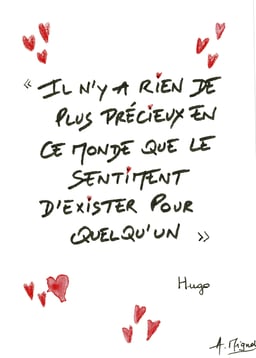 « IL N'Y A RIEN DE
PLUS PRÉCIEUX EN
CE MONDE QUE LE
SENTIMENT
D'EXISTER POUR
QUELQU'UN »
Hugo